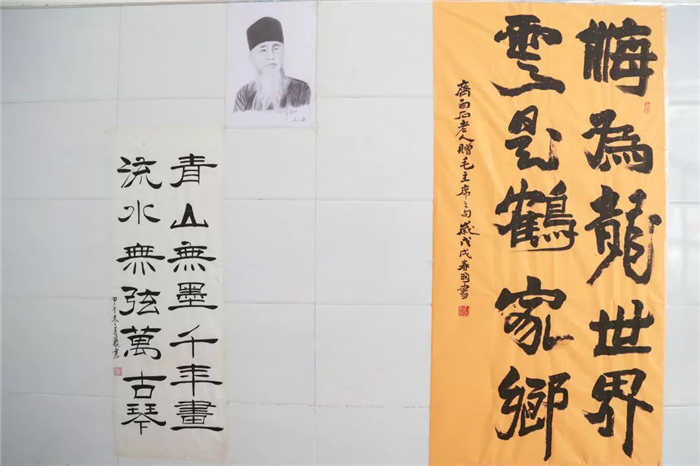 海為龍世界
雲是鶴家鄉
齊白石老人贈毛主席之句歲戊戌春書
青山無墨千年畫
流水無弦萬古琴
甲午冬